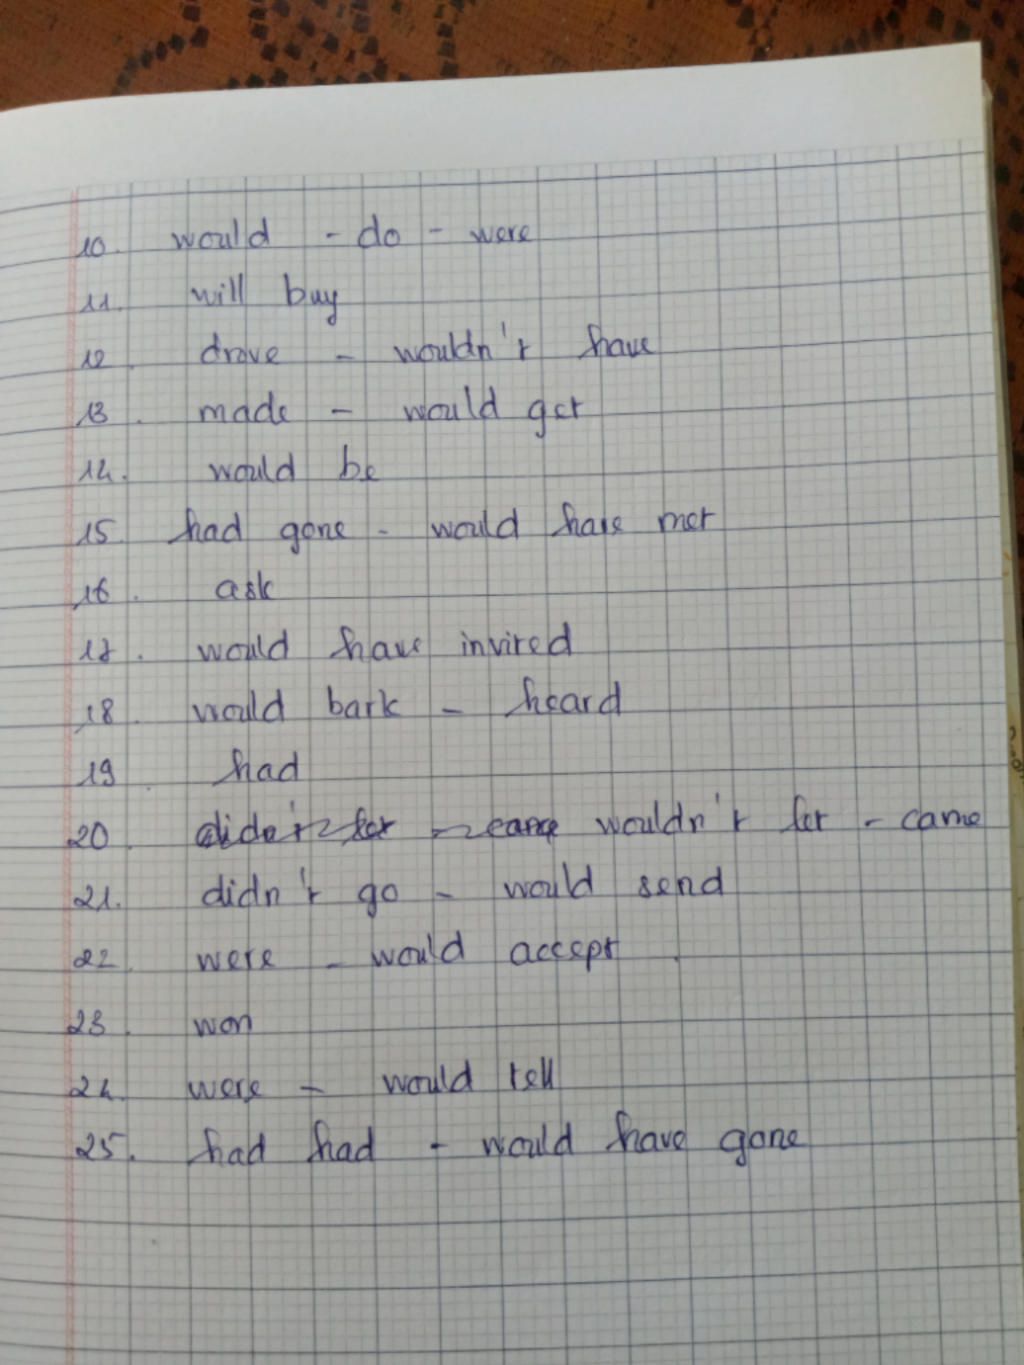 10. would - do - were
11. will buy
12 drove - wouldn't have
13. made - would get
14. would be
15. had gone - would have met
16. ask
17. would have invited
18. would bark - heard
19. had
20 wouldn't let - came
21. didn't go - would send
22. were - would accept.
23. won
24. were - would tell
25. had had - would have gone